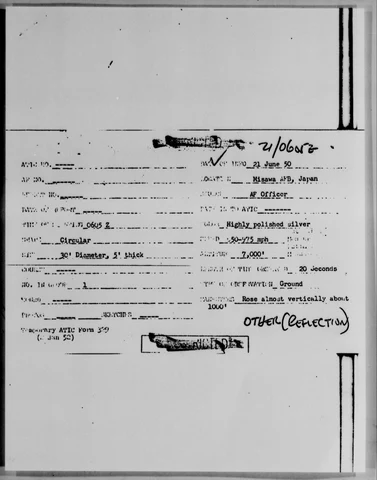 21/0605Z
ATIC NO. -----
DATE OF INFO 21 June 50
AF NO. -----
LOCATION Misawa AFB, Japan
REPORT NO. -----
SOURCE AF Officer
DATE OF REPORT -----
DATE IN TO ATIC -----
TIME OF SIGHTING 0605 Z
COLOR Highly polished silver
SHAPE Circular
SPEED mph
SIZE 30' Diameter, 5' thick
ALTITUDE 7,000'
COURSE -----
LENGTH OF TIME OBSERVED 20 Seconds
NO. IN GROUP 1
TYPE OF OBSERVATION Ground
SOUND -----
MANEUVERS Rose almost vertically about
1000'
PHOTOS SKETCHES
OTHER (REFLECTION)
Temporary ATIC Form 329
(2 Jan 52)